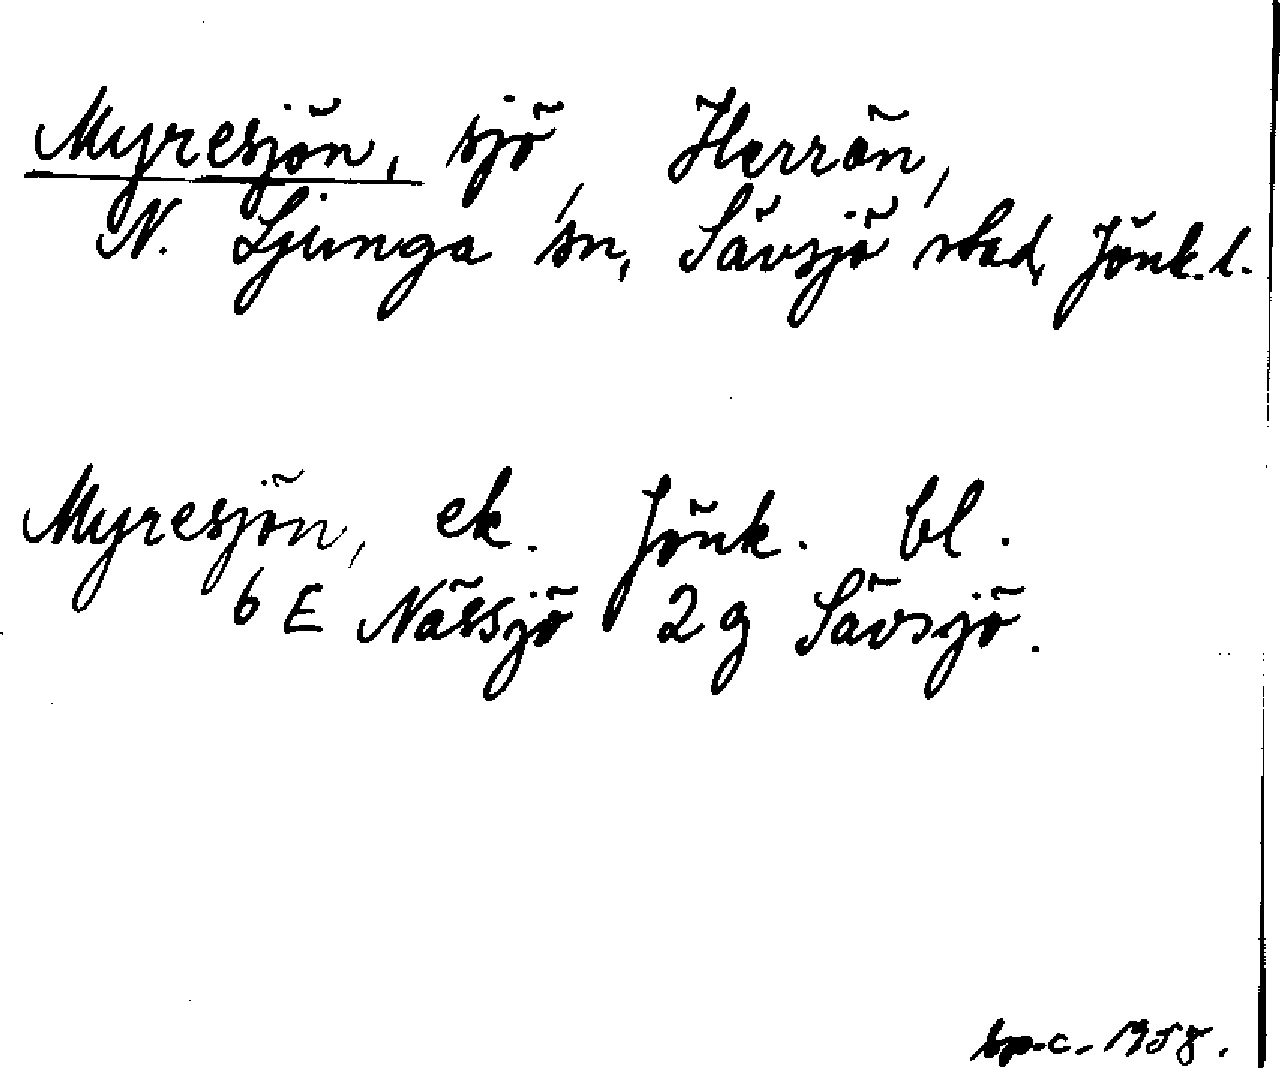 Myresjön, sjö, Herrön,
N. Ljunga sn, Sävsjö stad, Jönk. l.
Myresjön, ek. Jönk. bl.
6 E Nässjö 2 g Sävsjö.
1958.